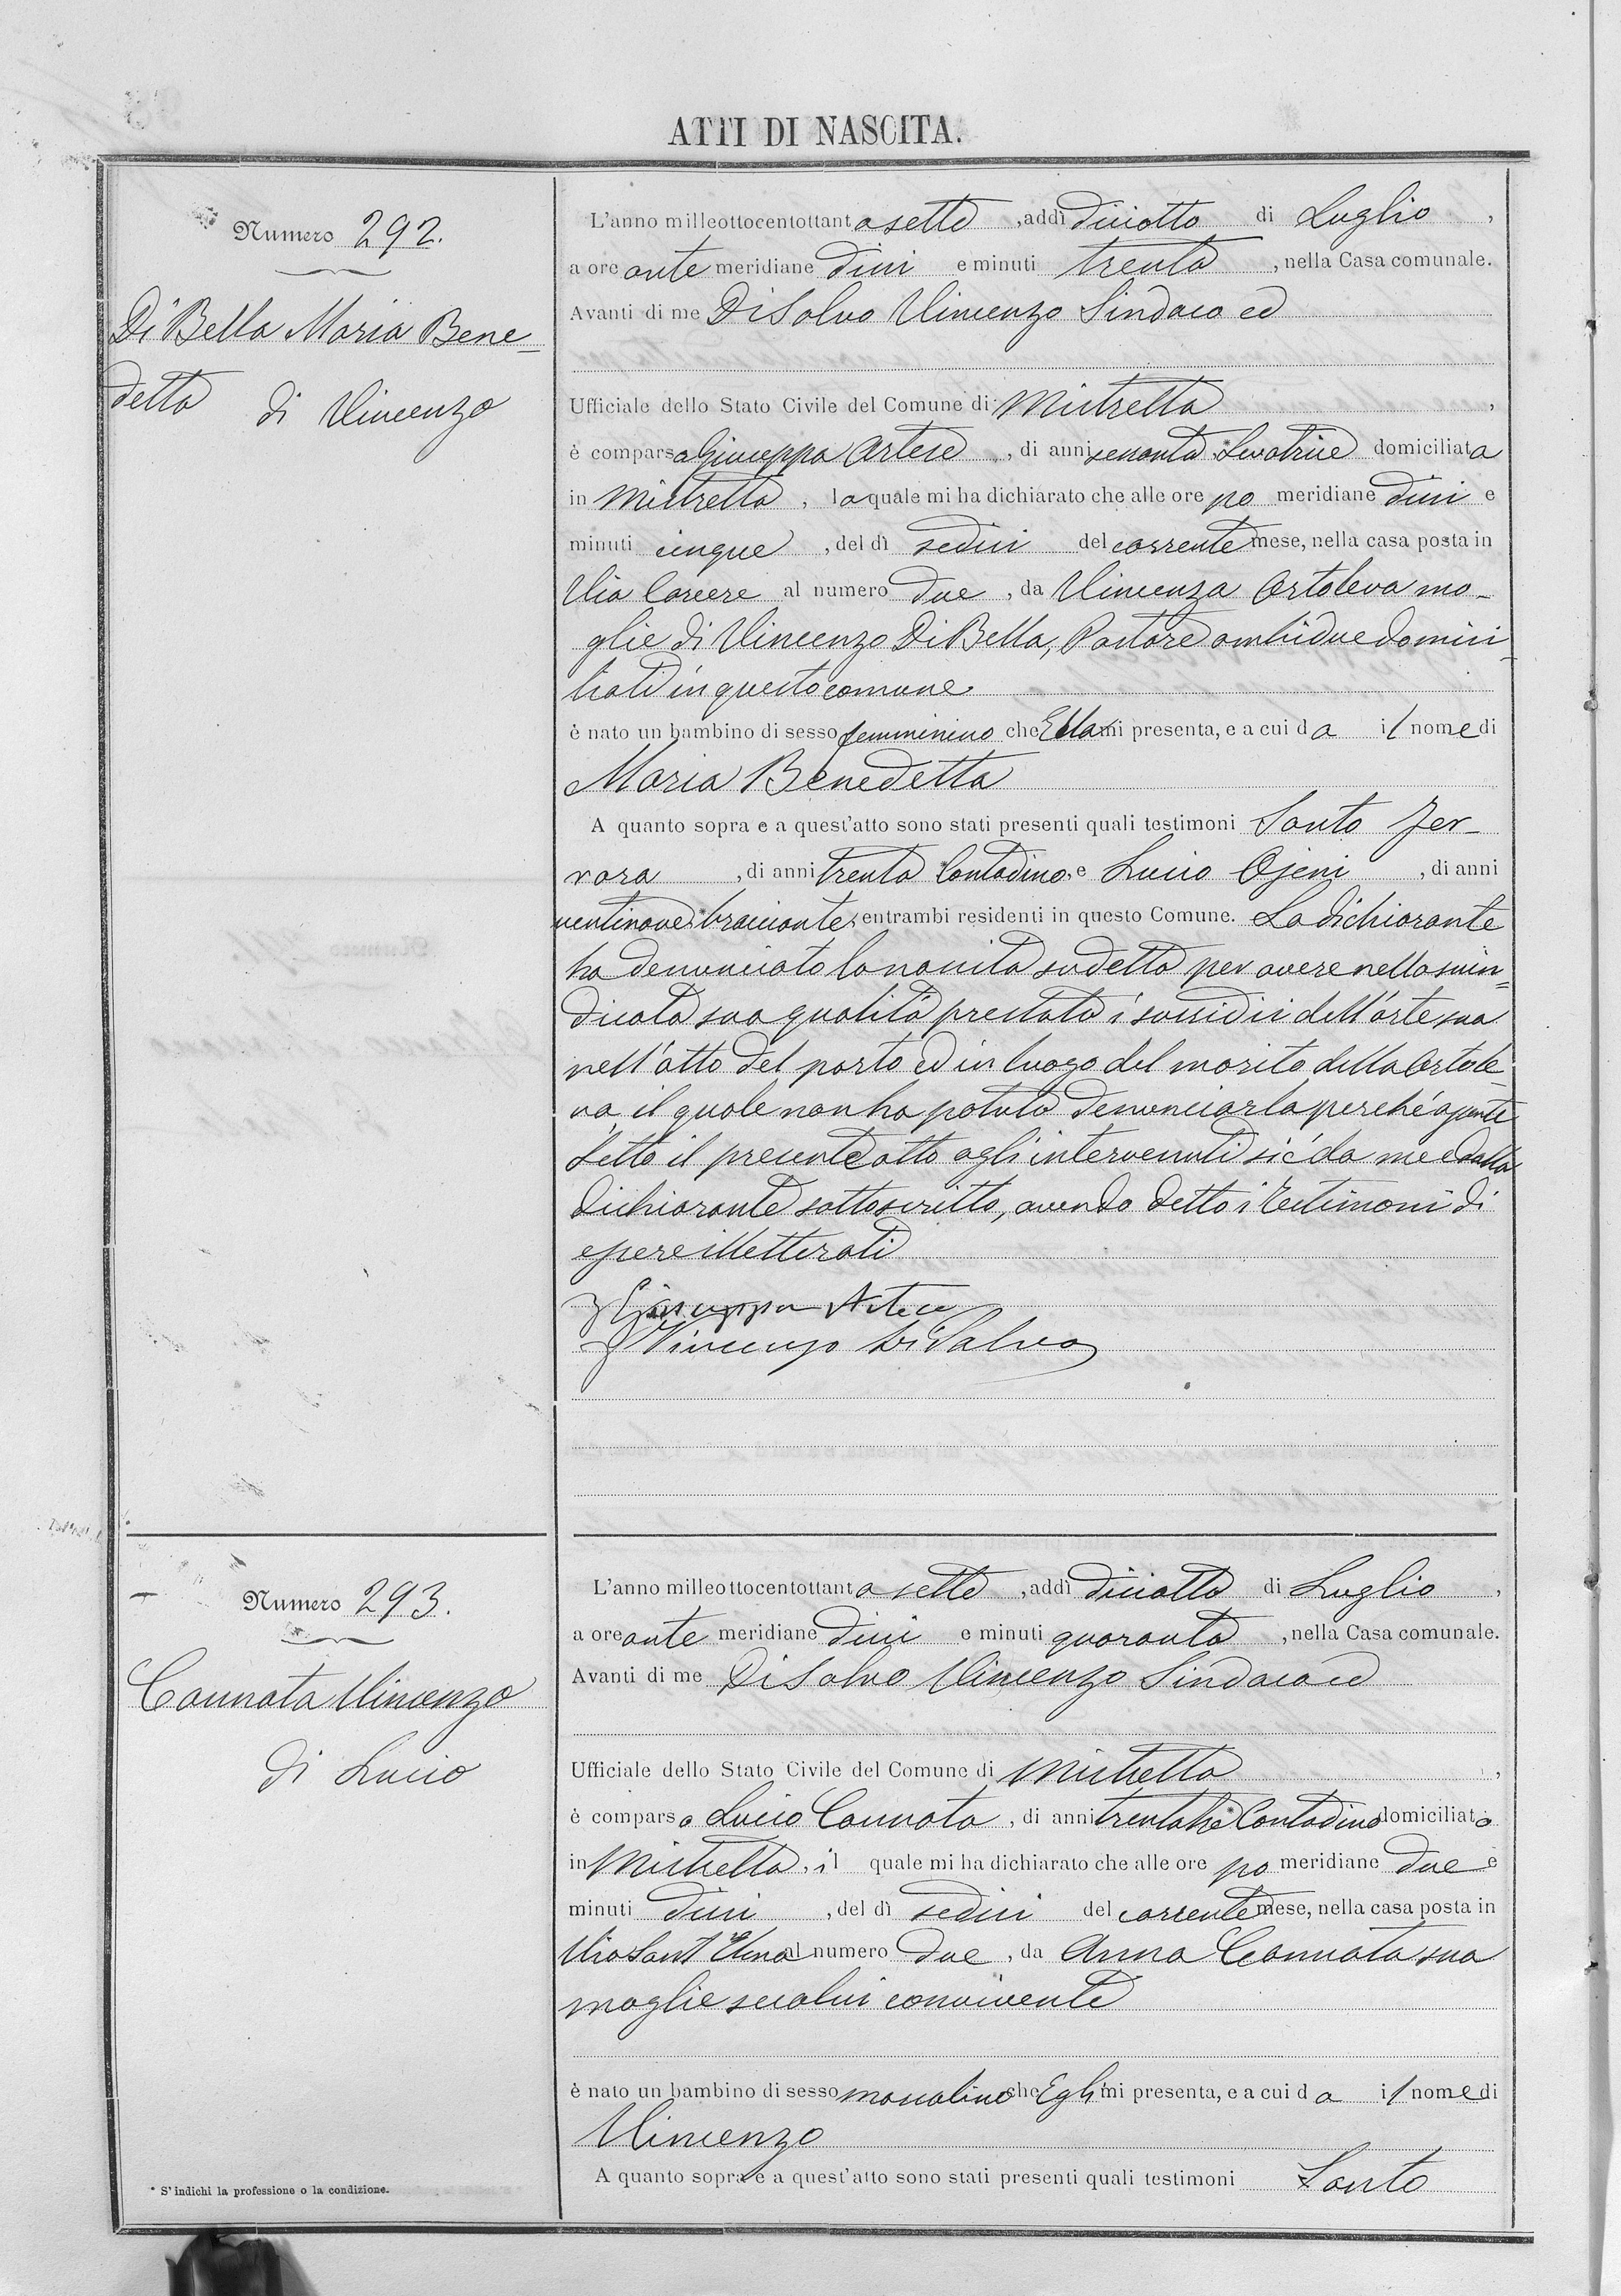 ATTI DI NASCITA.
Numero 292.
Di Bella Maria Bene=
detta di Vincenzo
L'anno milleottocentottantasette, addì diciotto di Luglio,
a ore ante meridiane dieci e minuti trenta, nella Casa comunale.
Avanti di me Di Salvo Vincenzo Sindaco ed
Ufficiale dello Stato Civile del Comune di Mistretta,
è comparsa Giuseppa Artese, di anni sessanta Levatrice domiciliata
in Mistretta, la quale mi ha dichiarato che alle ore po meridiane dieci e
minuti cinque, del dì sedici del corrente mese, nella casa posta in
Via Carcere al numero due, da Vincenza Ortoleva mo-
glie di Vincenzo Di Bella, Pastore ambidue domici
liati in questo comune
è nato un bambino di sesso femminino che Ella mi presenta, e a cui da il nome di
Maria Benedetta
A quanto sopra e a quest'atto sono stati presenti quali testimoni Santo Fer-
rara, di anni trenta Contadino, e Lucio Ojeni, di anni
ventinove, bracciante, entrambi residenti in questo Comune. La dichiarante
ha denunciato la nascita sudetta per avere nella suin=
dicata sua qualità prestata i sussidii dell'arte sua
nell'atto del parto ed in luogo del marito della Ortole-
va, il quale non ha potuto denunciarla perché assente
Letto il presente atto agli intervenuti si è da me e dalla
dichiarante sottoscritto, avendo detto i testimoni di
essere illetterati
Giuseppa Artese
Vincenzo Di Salvo
Numero 293.
Cannata Vincenzo
di Lucio
L'anno milleottocentottantasette, addì diciotto di Luglio,
a ore ante meridiane dieci e minuti quaranta, nella Casa comunale.
Avanti di me Di Salvo Vincenzo Sindaco ed
Ufficiale dello Stato Civile del Comune di Mistretta,
è comparso Lucio Cannata, di anni trentatre Contadino domiciliato
in Mistretta, il quale mi ha dichiarato che alle ore po meridiane due e
minuti dieci, del dì sedici del corrente mese, nella casa posta in
Via Sant' Elena al numero due, da Anna Cannata sua
moglie seco lui convivente
è nato un bambino di sesso mascolino che Egli mi presenta, e a cui da il nome di
Vincenzo
A quanto sopra e a quest'atto sono stati presenti quali testimoni Santo
* S'indichi la professione o la condizione.